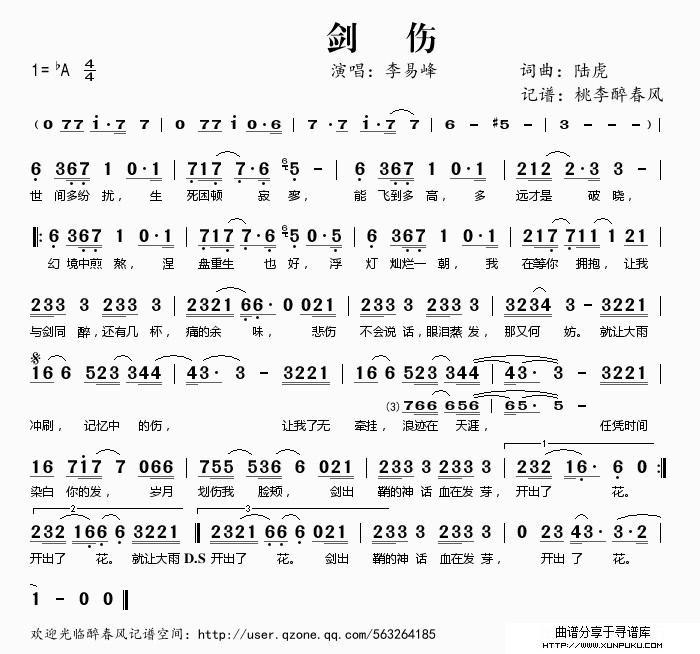 剑 伤
1=♭A 4/4 演唱：李易峰 词曲：陆虎
记谱：桃李醉春风
（0 77 i·7 7 | 0 77 i 0·6 | 7 ·7 i·7 7 | 6 - #5 - | 3 - - - ）|
6 367 1 0·1 | 717 7·6 6 5· - | 6 367 1 0·1 | 212 2·3 3 - |
世 间多纷 扰， 生 死困顿 寂 寥， 能 飞到多 高， 多 远才是 破 晓，
‖: 6 367 1 0·1 | 717 7·6 6 5 0·5 | 6 367 1 0·1 | 217 711 1 21 |
幻 境中煎 熬， 涅 盘重生 也 好， 浮 灯 灿烂一 朝， 我 在等你 拥抱， 让我
233 3 233 3 | 2321 66· 0 021 | 233 3 233 3 | 3234 3 - 3221 |
与剑同 醉，还有几 杯， 痛的余 味， 悲伤 不会说 话，眼泪蒸 发， 那又何 妨。 就让大雨
𝄋
16 6 523 344 | 43· 3 - 3221 | 16 6 523 344 | 43· 3 - 3221 |
(3) 766 656 | 65· 5 -
冲刷， 记忆中 的伤， 让我了无 牵挂， 浪迹在 天涯， 任凭时间
1
16 7i7 7 066 | 755 536 6 021 | 233 3 233 3 | 232 16· 6 0 :‖
染白 你的发， 岁月 划伤我 脸颊， 剑出 鞘的神 话 血在发 芽， 开出了 花。
2 3
232 166 6 3221 ‖ 2321 66 6 021 | 233 3 233 3 | 0 23 43· 3·2 |
开出了 花。 就让大雨 D.S 开出了 花。 剑出 鞘的神 话 血在发 芽， 开出 了 花。
1 - 0 0 ‖
欢迎光临醉春风记谱空间：http://user.qzone.qq.com/563264185
曲谱分享于寻谱库
WWW.XUNPUKU.COM